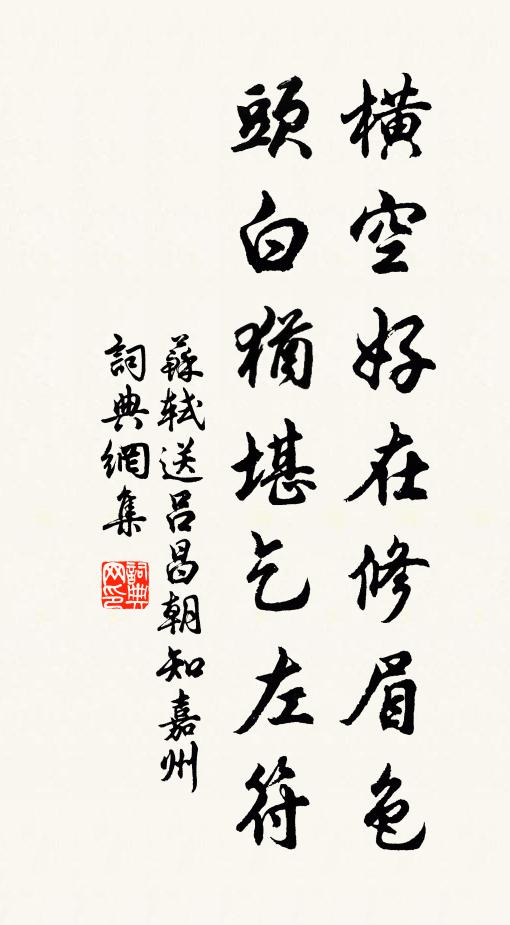 橫空好在修眉色
頭白猶堪乞左符
蘇軾送呂昌朝知嘉州
詞典網集
詞典网印